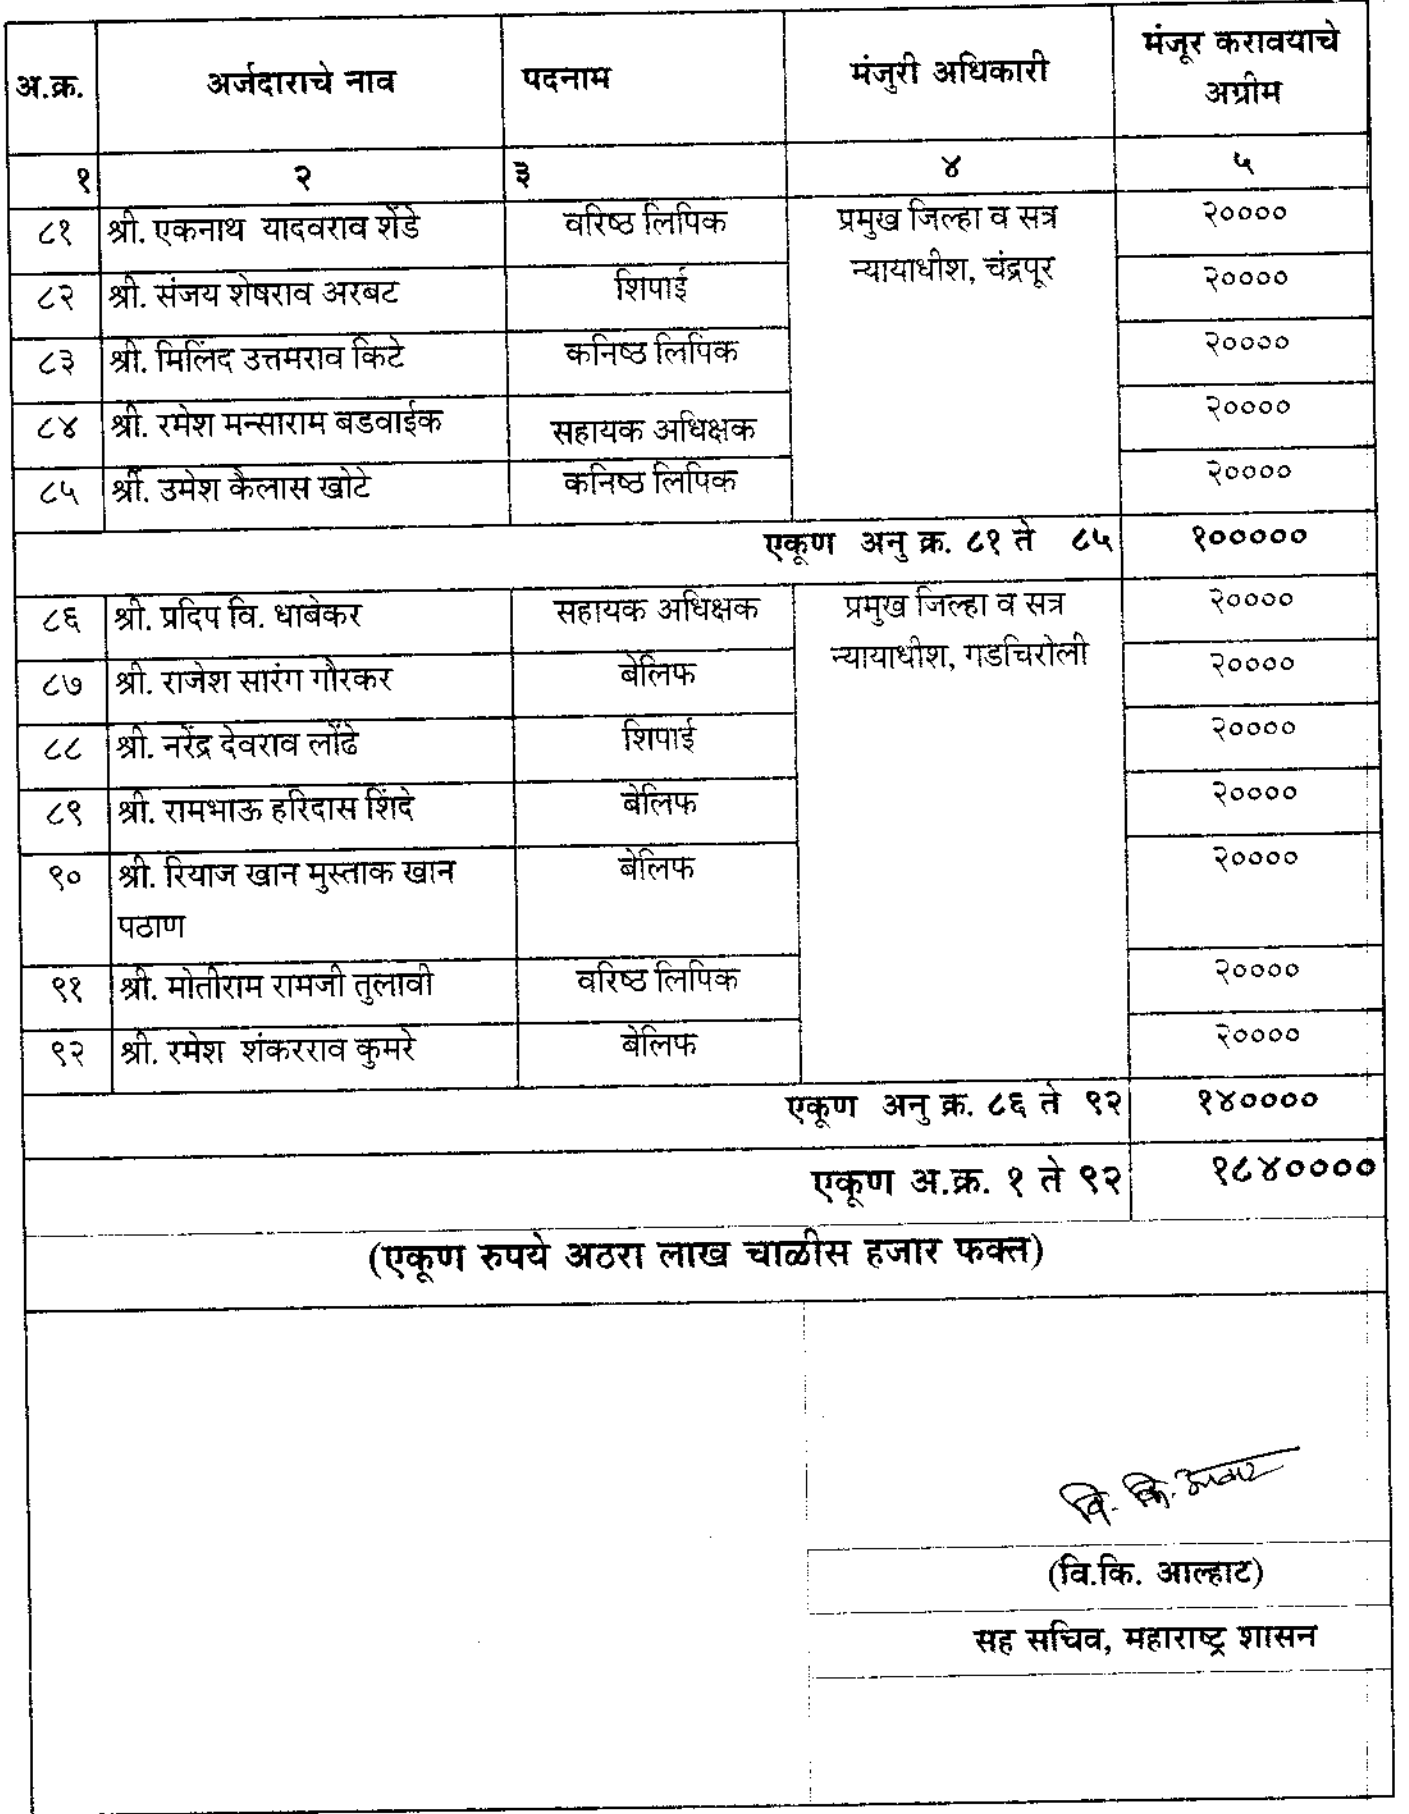 अ.क्र. अर्जदाराचे नाव पदनाम मंजुरी अधिकारी मंजूर करावयाचे
अग्रीम
१ २ ३ ४ ५
८१ श्री. एकनाथ यादवराव शेंडे वरिष्ठ लिपिक प्रमुख जिल्हा व सत्र २००००
न्यायाधीश, चंद्रपूर
८२ श्री. संजय शेषराव अरबट शिपाई २००००
८३ श्री. मिलिंद उत्तमराव किटे कनिष्ठ लिपिक २००००
८४ श्री. रमेश मन्साराम बडवाईक सहायक अधिक्षक २००००
८५ श्री. उमेश कैलास खोटे कनिष्ठ लिपिक २००००
एकूण अनु क्र. ८१ ते ८५ १०००००
८६ श्री. प्रदिप वि. धाबेकर सहायक अधिक्षक प्रमुख जिल्हा व सत्र २००००
न्यायाधीश, गडचिरोली
८७ श्री. राजेश सारंग गौरकर बेलिफ २००००
८८ श्री. नरेंद्र देवराव लोंढे शिपाई २००००
८९ श्री. रामभाऊ हरिदास शिंदे बेलिफ २००००
९० श्री. रियाज खान मुस्ताक खान बेलिफ २००००
पठाण
९१ श्री. मोतीराम रामजी तुलावी वरिष्ठ लिपिक २००००
९२ श्री. रमेश शंकरराव कुमरे बेलिफ २००००
एकूण अनु क्र. ८६ ते ९२ १४००००
एकूण अ.क्र. १ ते ९२ १८४००००
(एकूण रुपये अठरा लाख चाळीस हजार फक्त)
वि. कि.
(वि.कि. आल्हाट)
सह सचिव, महाराष्ट्र शासन